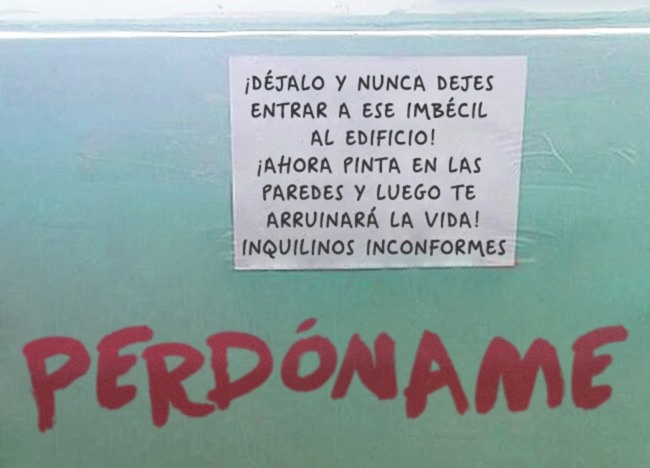 ¡DÉJALO Y NUNCA DEJES
ENTRAR A ESE IMBÉCIL
AL EDIFICIO!
¡AHORA PINTA EN LAS
PAREDES Y LUEGO TE
ARRUINARÁ LA VIDA!
INQUILINOS INCONFORMES
PERDÓNAME